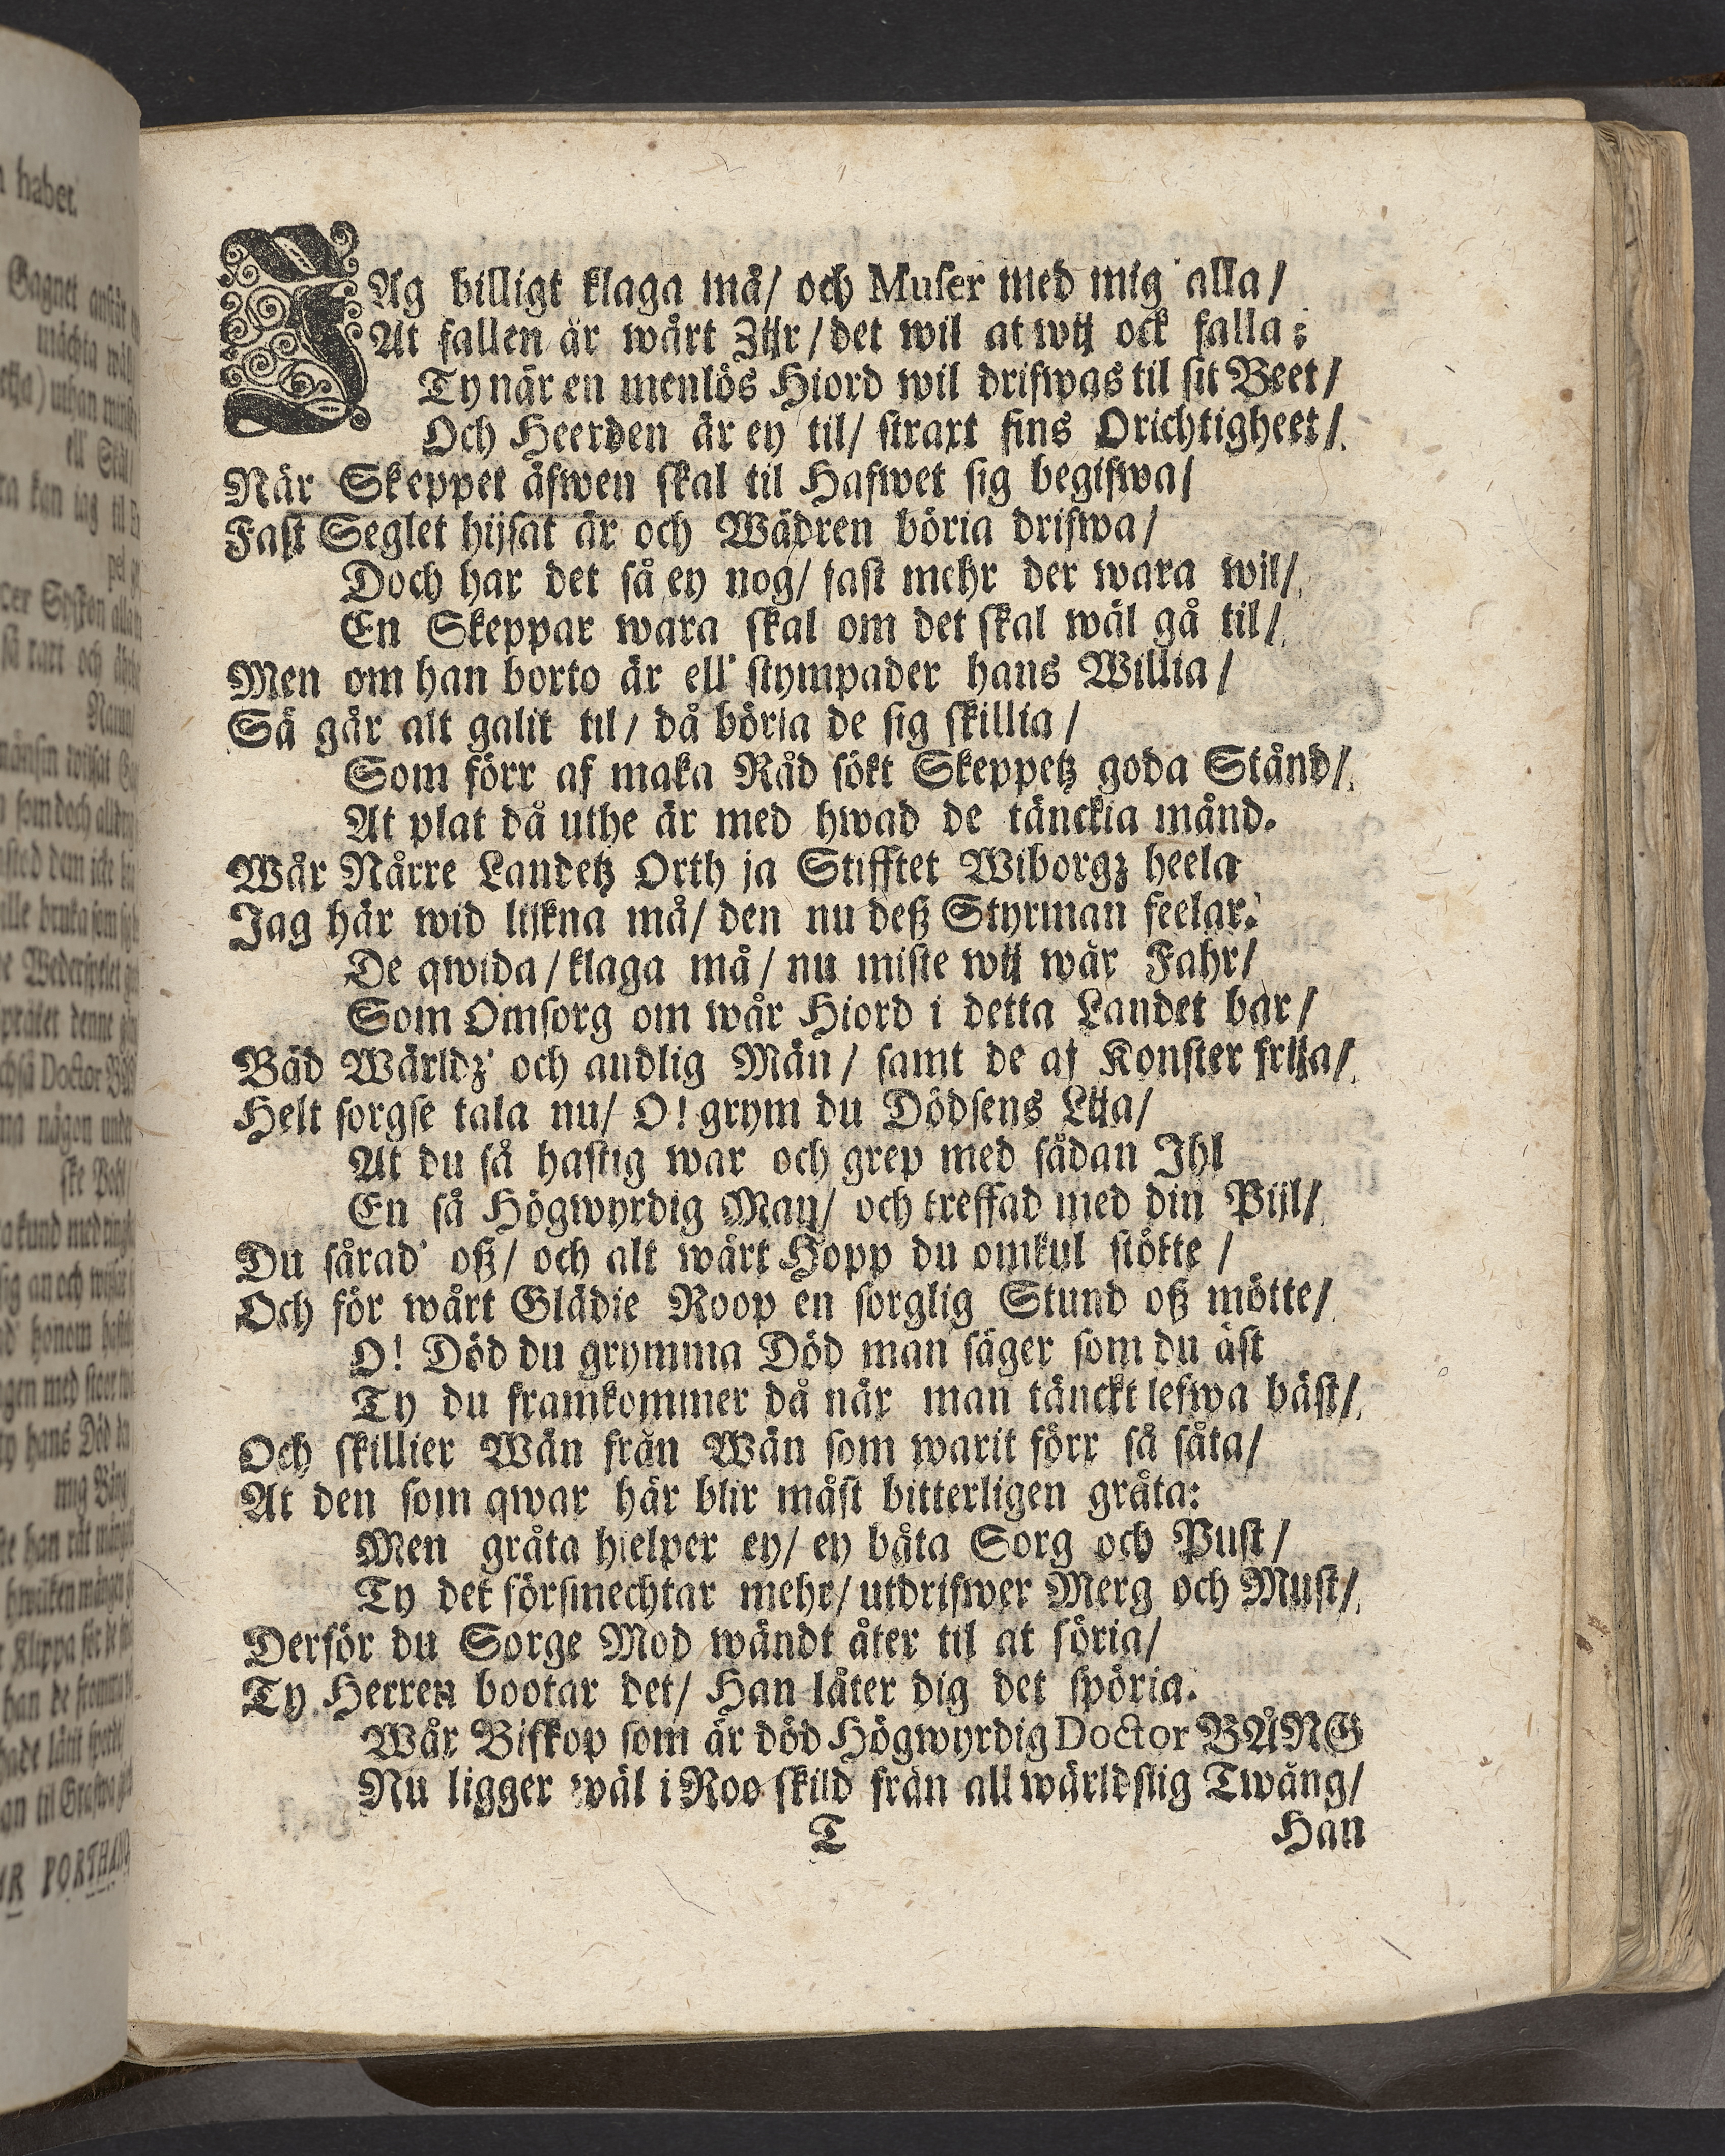 JAg billigt klaga må/ och Muser med mig alla/
At fallen är wårt Zijr/ det wil at wij ock falla;
Ty när en menlös Hiord wil drifwas til sit Beet/
Och Heerden är ey til/ straxt fins Orichtigheet/
När Skeppet äfwen skal til Hafwet sig begifwa/
Fast Seglet hijsat är och Wädren böria drifwa/
Doch har det så ey nog/ fast mehr der wara wil/
En Skeppar wara skal om det skal wäl gå til/
Men om han borto är ell' stympader hans Willia/
Så går alt galit til/ då böria de sig skillia/
Som förr af maka Råd sökt Skeppetz goda Stånd/
At plat då uthe är med hwad de tänckia månd.
Wår Nårre Landetz Orth ja Stifftet Wiborgz heela
Jag här wid lijkna må/ den nu deß Styrman feelar.
De qwida/ klaga må/ nu miste wij wår Fahr/
Som Omsorg om wår Hiord i detta Landet bar/
Båd Wärldz' och andlig Män/ samt de af Konster frija/
Helt sorgse tala nu/ O! grym du Dödsens Lija/
At du så hastig war och grep med sådan Ihl
En så Högwyrdig Man/ och treffad med din Pijl/
Du sårad' oß/ och alt wårt Hopp du omkul stötte/
Och för wårt Glädie Roop en sorglig Stund oß mötte/
O! Död du grymma Död man säger som du äst
Ty du framkommer då när man tänckt lefwa bäst/
Och skillier Wän från Wän som warit förr så såta/
At den som qwar här blir måst bitterligen gråta:
Men gråta hielper ey/ ey båta Sorg och Pust/
Ty det försmechtar mehr/ utdrifwer Merg och Must/
Derför du Sorge Mod wändt åter til at söria/
Ty Herren bootar det/ Han låter dig det spöria.
Wår Biskop som är död Högwyrdig Doctor BÅNG
Nu ligger wäl i Roo skild från all wärldslig Twång/
T
Han